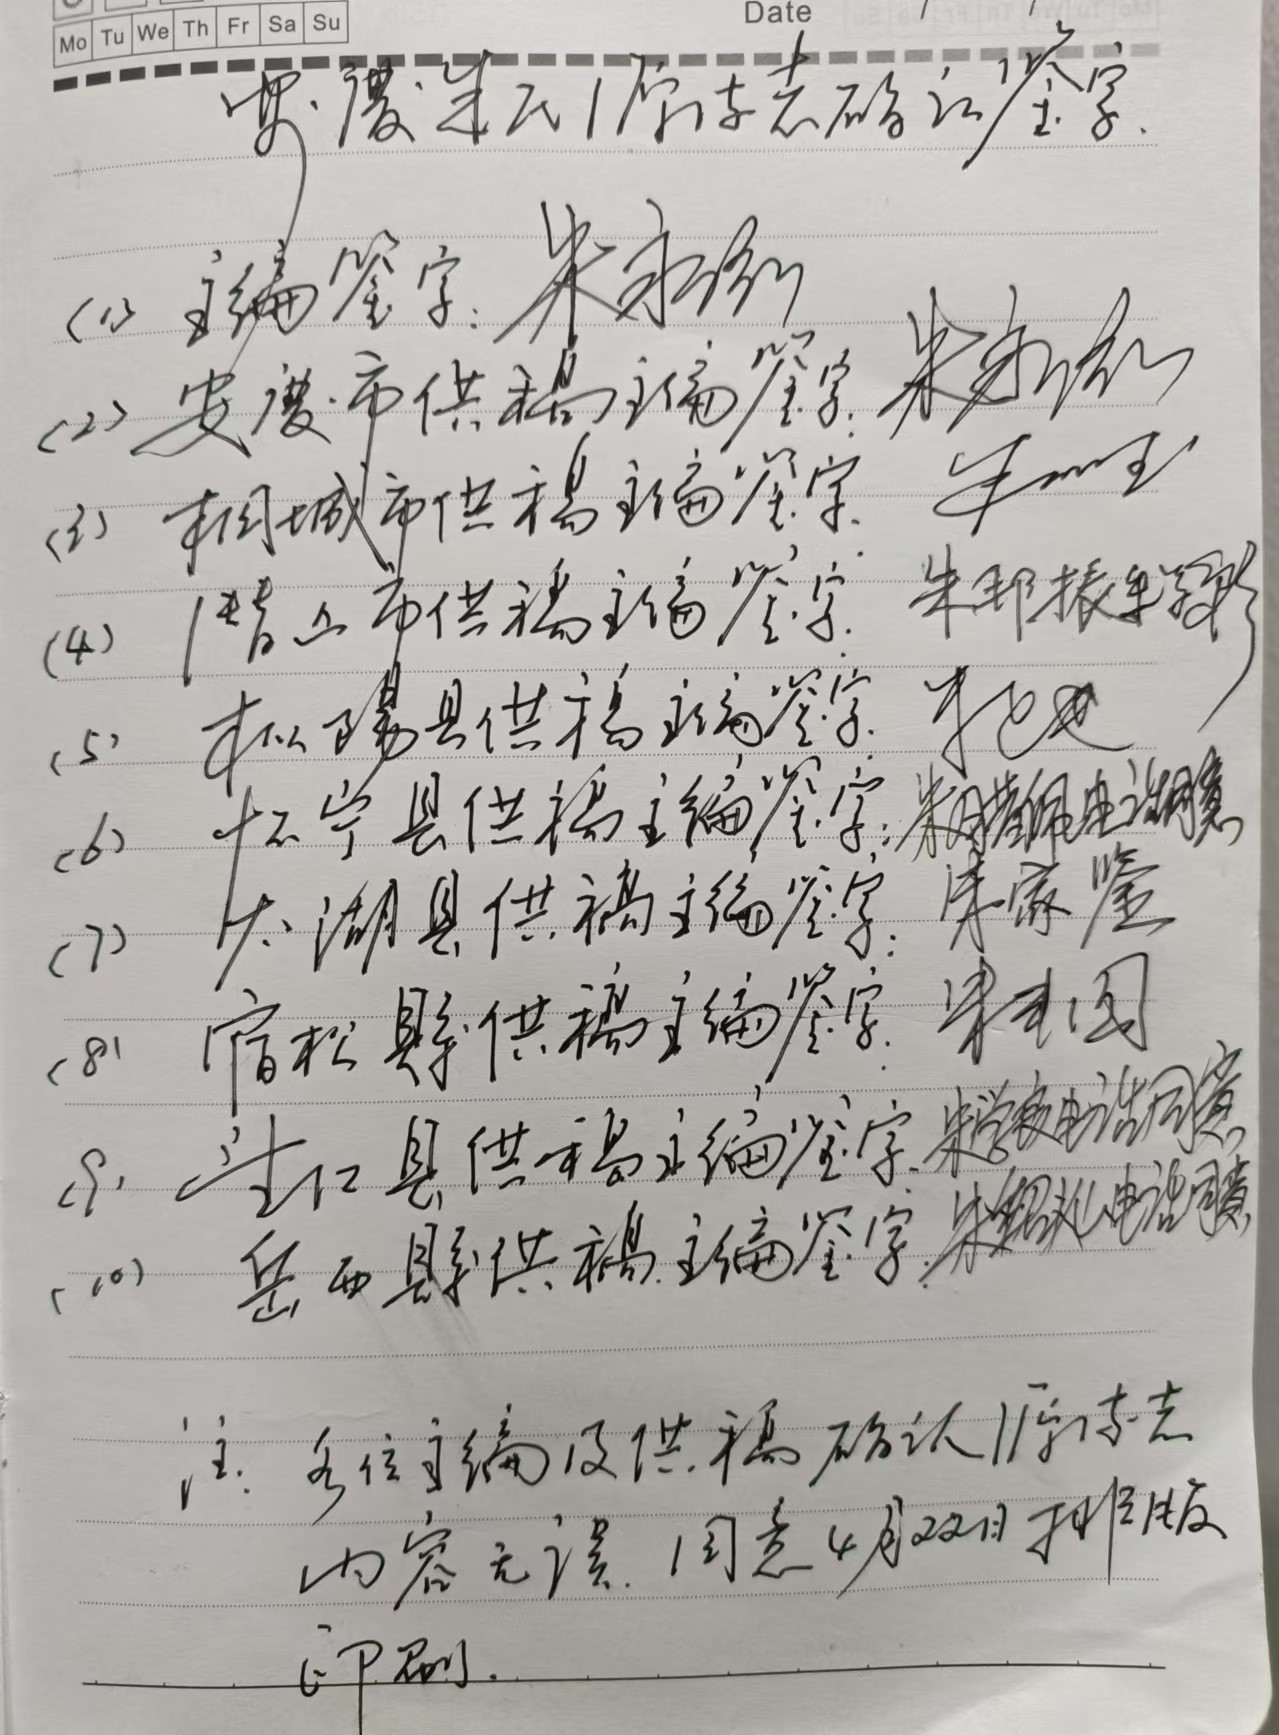 Mo Tu We Th Fr Sa Su
Date / /
安庆朱氏源流志确认签字.
(1) 主编签字: 朱永
(2) 安庆市供稿主编签字: 朱永
(3) 桐城市供稿主编签字. 朱
(4) 潜山市供稿主编签字. 朱邦振
(5) 枞阳县供稿主编签字. 朱
(6) 怀宁县供稿主编签字: 朱 电话同意
(7) 太湖县供稿主编签字: 朱家鉴
(8) 宿松縣供稿主编签字. 朱国
(9) 望江县供稿主编签字. 朱学 电话同意
(10) 岳西縣供稿主编签字. 朱 电话同意
注. 各位主编及供稿确认源流志
内容无误. 同意4月22日排版
印刷.